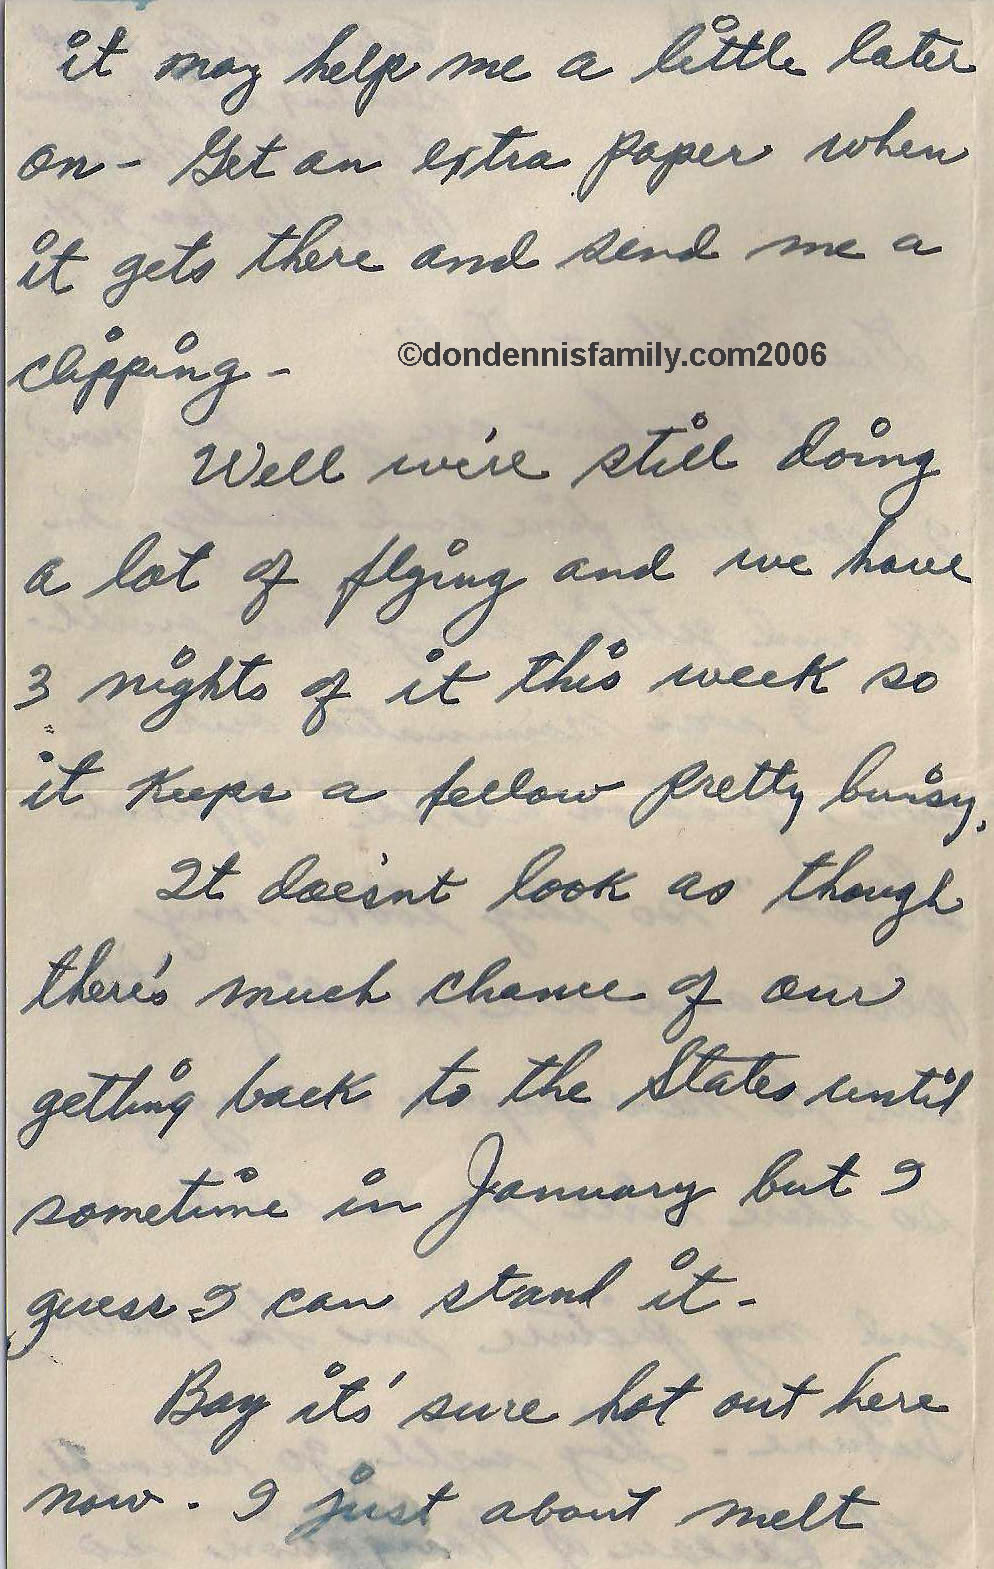 it may help me a little later
on - Get an extra paper when
it gets there and send me a
clipping -
©dondennisfamily.com2006
Well we're still doing
a lot of flying and we have
3 nights of it this week so
it keeps a fellow pretty buisy.
It does'nt look as though
there's much chance of our
getting back to the States until
sometime in January but I
guess I can stand it -
Boy it's sure hot out here
now - I just about melt